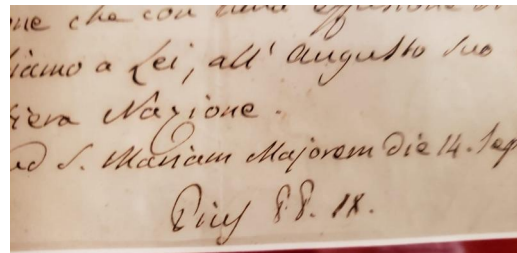 one che con una effusione di
iamo a Lei, all' Augusto suo
iera Nazione.
ad S. Mariam Majorem Die 14. Sep
Pius PP. IX.